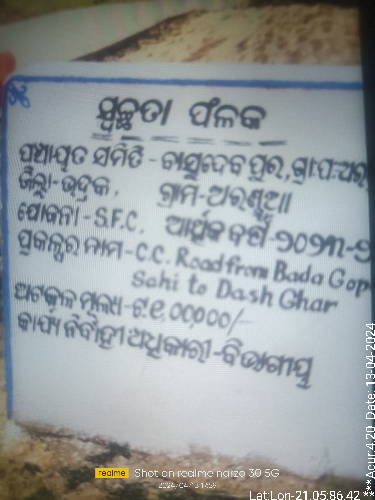 ସ୍ୱଚ୍ଛତା ଫଳକ
ପଞ୍ଚାୟତ ସମିତି - ବାସୁଦେବପୁର, ଗ୍ରା.ପଂ-ଅର
ଜିଲ୍ଲା-ଭଦ୍ରକ, ଗ୍ରାମ-ଅରଣ୍ଡୁଆ
ଯୋଜନା - S.F.C. ଆର୍ଥିକ ବର୍ଷ-୨୦୨୩-୨
ପ୍ରକଳ୍ପର ନାମ - C.C. Road from Bada Gop
Sahi to Dash Ghar
ଅଟକଳ ମୂଲ୍ୟ - ଟ.
କାର୍ଯ୍ୟ ନିର୍ବାହୀ ଅଧିକାରୀ - ବିଭାଗୀୟ
realme Shot on realme narzo 30 5G
Lat:Lon-21.05:86.42 ***Acur:4.20 Date: 13-04-2024